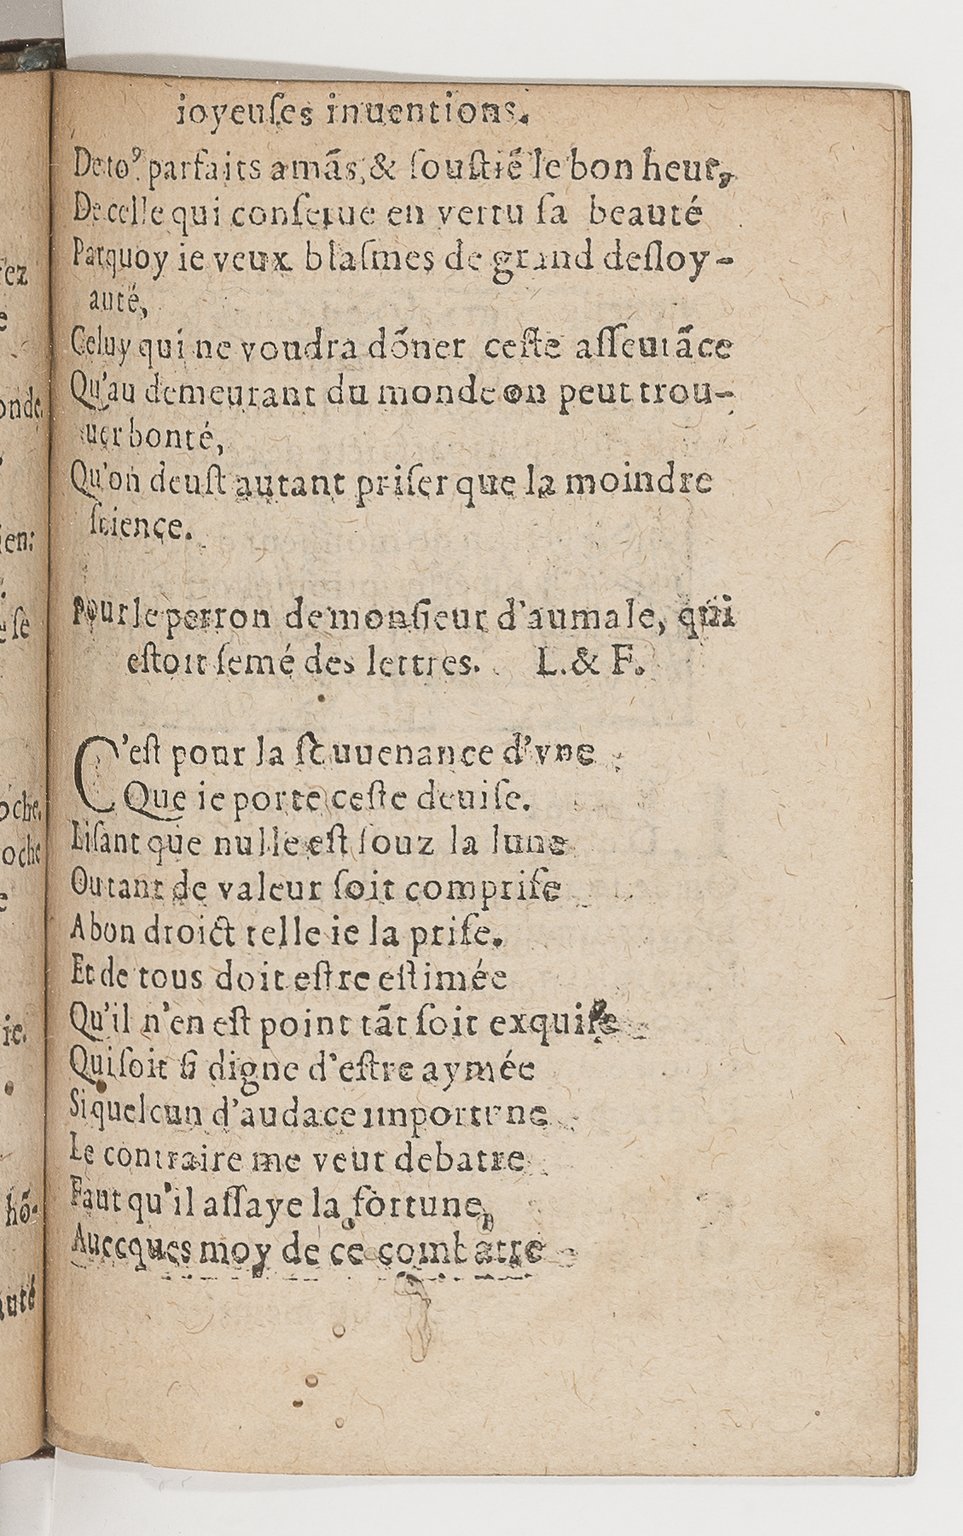 ioyeuſes inuentions.
De toꝰ parfaits amãs, & ſouſtiẽ le bon heur,
De celle qui conſerue en vertu ſa beauté
Parquoy ie veux blaſmes de grand deſloy-
auté,
Celuy qui ne voudra dõner ceſte aſſeurãce
Qu'au demeurant du monde on peut trou-
uer bonté,
Qu'on deuſt autant priſer que la moindre
ſcience.
Pour le perron de monſieur d'aumale, qui
eſtoit ſemé des lettres. L. & F.
C'eſt pour la ſouuenance d'vne
Que ie porte ceſte deuiſe.
Liſant que nulle eſt ſouz la lune
Ou tant de valeur ſoit compriſe
A bon droict telle ie la priſe.
Et de tous doit eſtre eſtimée
Qu'il n'en eſt point tãt ſoit exquiſe
Qui ſoit ſi digne d'eſtre aymée
Si quelcun d'audace importune
Le contraire me veut debatre
Faut qu'il aſſaye la fortune,
Auecques moy de ce combatre
rez
e
onde.
ien:
ſe
oche.
oche
e
ie.
hõ-
auté